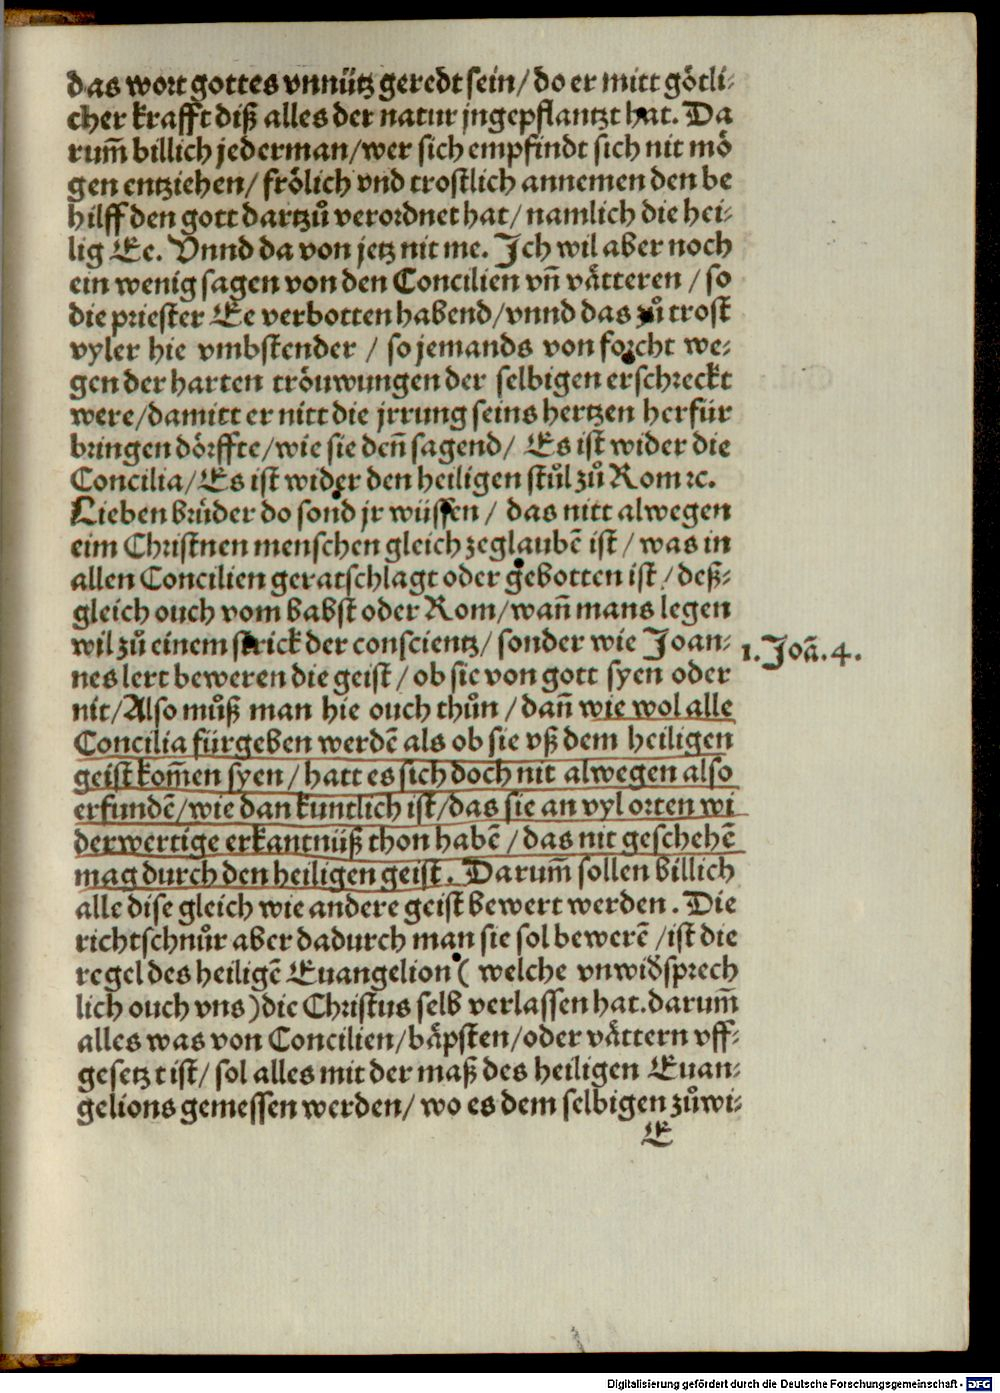 das wort gottes vnnütz geredt sein/ do er mitt götli⸗
cher krafft diß alles der natur jngepflantzt hat. Da
rum̃ billich jederman/wer sich empfindt sich nit mö
gen entziehen/ frölich vnd trostlich annemen den be
hilff den gott dartzů verordnet hat/ namlich die hei⸗
lig Ee. Vnnd da von jetz nit me. Jch wil aber noch
ein wenig sagen von den Concilien vn̄ vätteren / so
die priester Ee verbotten habend/vnnd das zů trost
vyler hie vmbstender / so jemands von forcht we⸗
gen der harten tröuwungen der selbigen erschreckt
were/damitt er nitt die jrrung seins hertzen herfür
bringen dörffte/wie sie den̄ sagend/ Es ist wider die
Concilia/Es ist wider den heiligen stůl zů Rom ꝛc.
Lieben brüder do sond jr wüssen / das nitt alwegen
eim Christnen menschen gleich zeglaubē ist / was in
allen Concilien geratschlagt oder gebotten ist / deß⸗
gleich ouch vom babst oder Rom/wan̄ mans legen
wil zů einem strick der conscientz/ sonder wie Joan⸗
nes lert beweren die geist / ob sie von gott syen oder
nit/Also můß man hie ouch thůn / dan̄ wie wol alle
Concilia fürgeben werdē als ob sie vß dem heiligen
geist kom̄en syen/hatt es sich doch nit alwegen also
erfundē/wie dan kuntlich ist/das sie an vyl orten wi
derwertige erkantnüß thon habē /das nit geschehē
mag durch den heiligen geist. Darum̄ sollen billich
alle dise gleich wie andere geist bewert werden. Die
richtschnůr aber dadurch man sie sol bewerē /ist die
regel des heiligē Euangelion ( welche vnwiđsprech
lich ouch vns)die Christus selb verlassen hat.darum̄
alles was von Concilien/bäpsten/oder vättern vff⸗
gesetzt ist/ sol alles mit der maß des heiligen Euan⸗
gelions gemessen werden/ wo es dem selbigen zůwi⸗
E
1. Joā. 4.
Digitalisierung gefördert durch die Deutsche Forschungsgemeinschaft - DFG